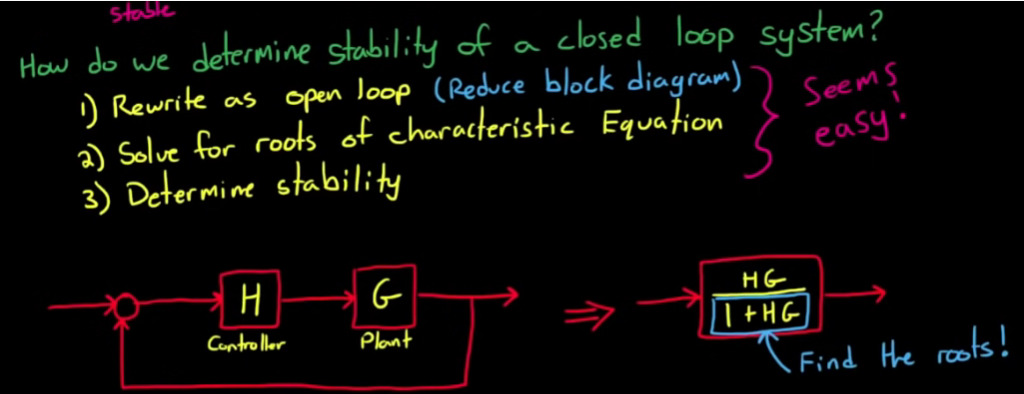 stable
How do we determine stability of a closed loop system?
1) Rewrite as open loop (Reduce block diagram)
2) Solve for roots of characteristic Equation
3) Determine stability
Seems
easy!
H
Controller
G
Plant
⇒
HG
1+HG
Find the roots!